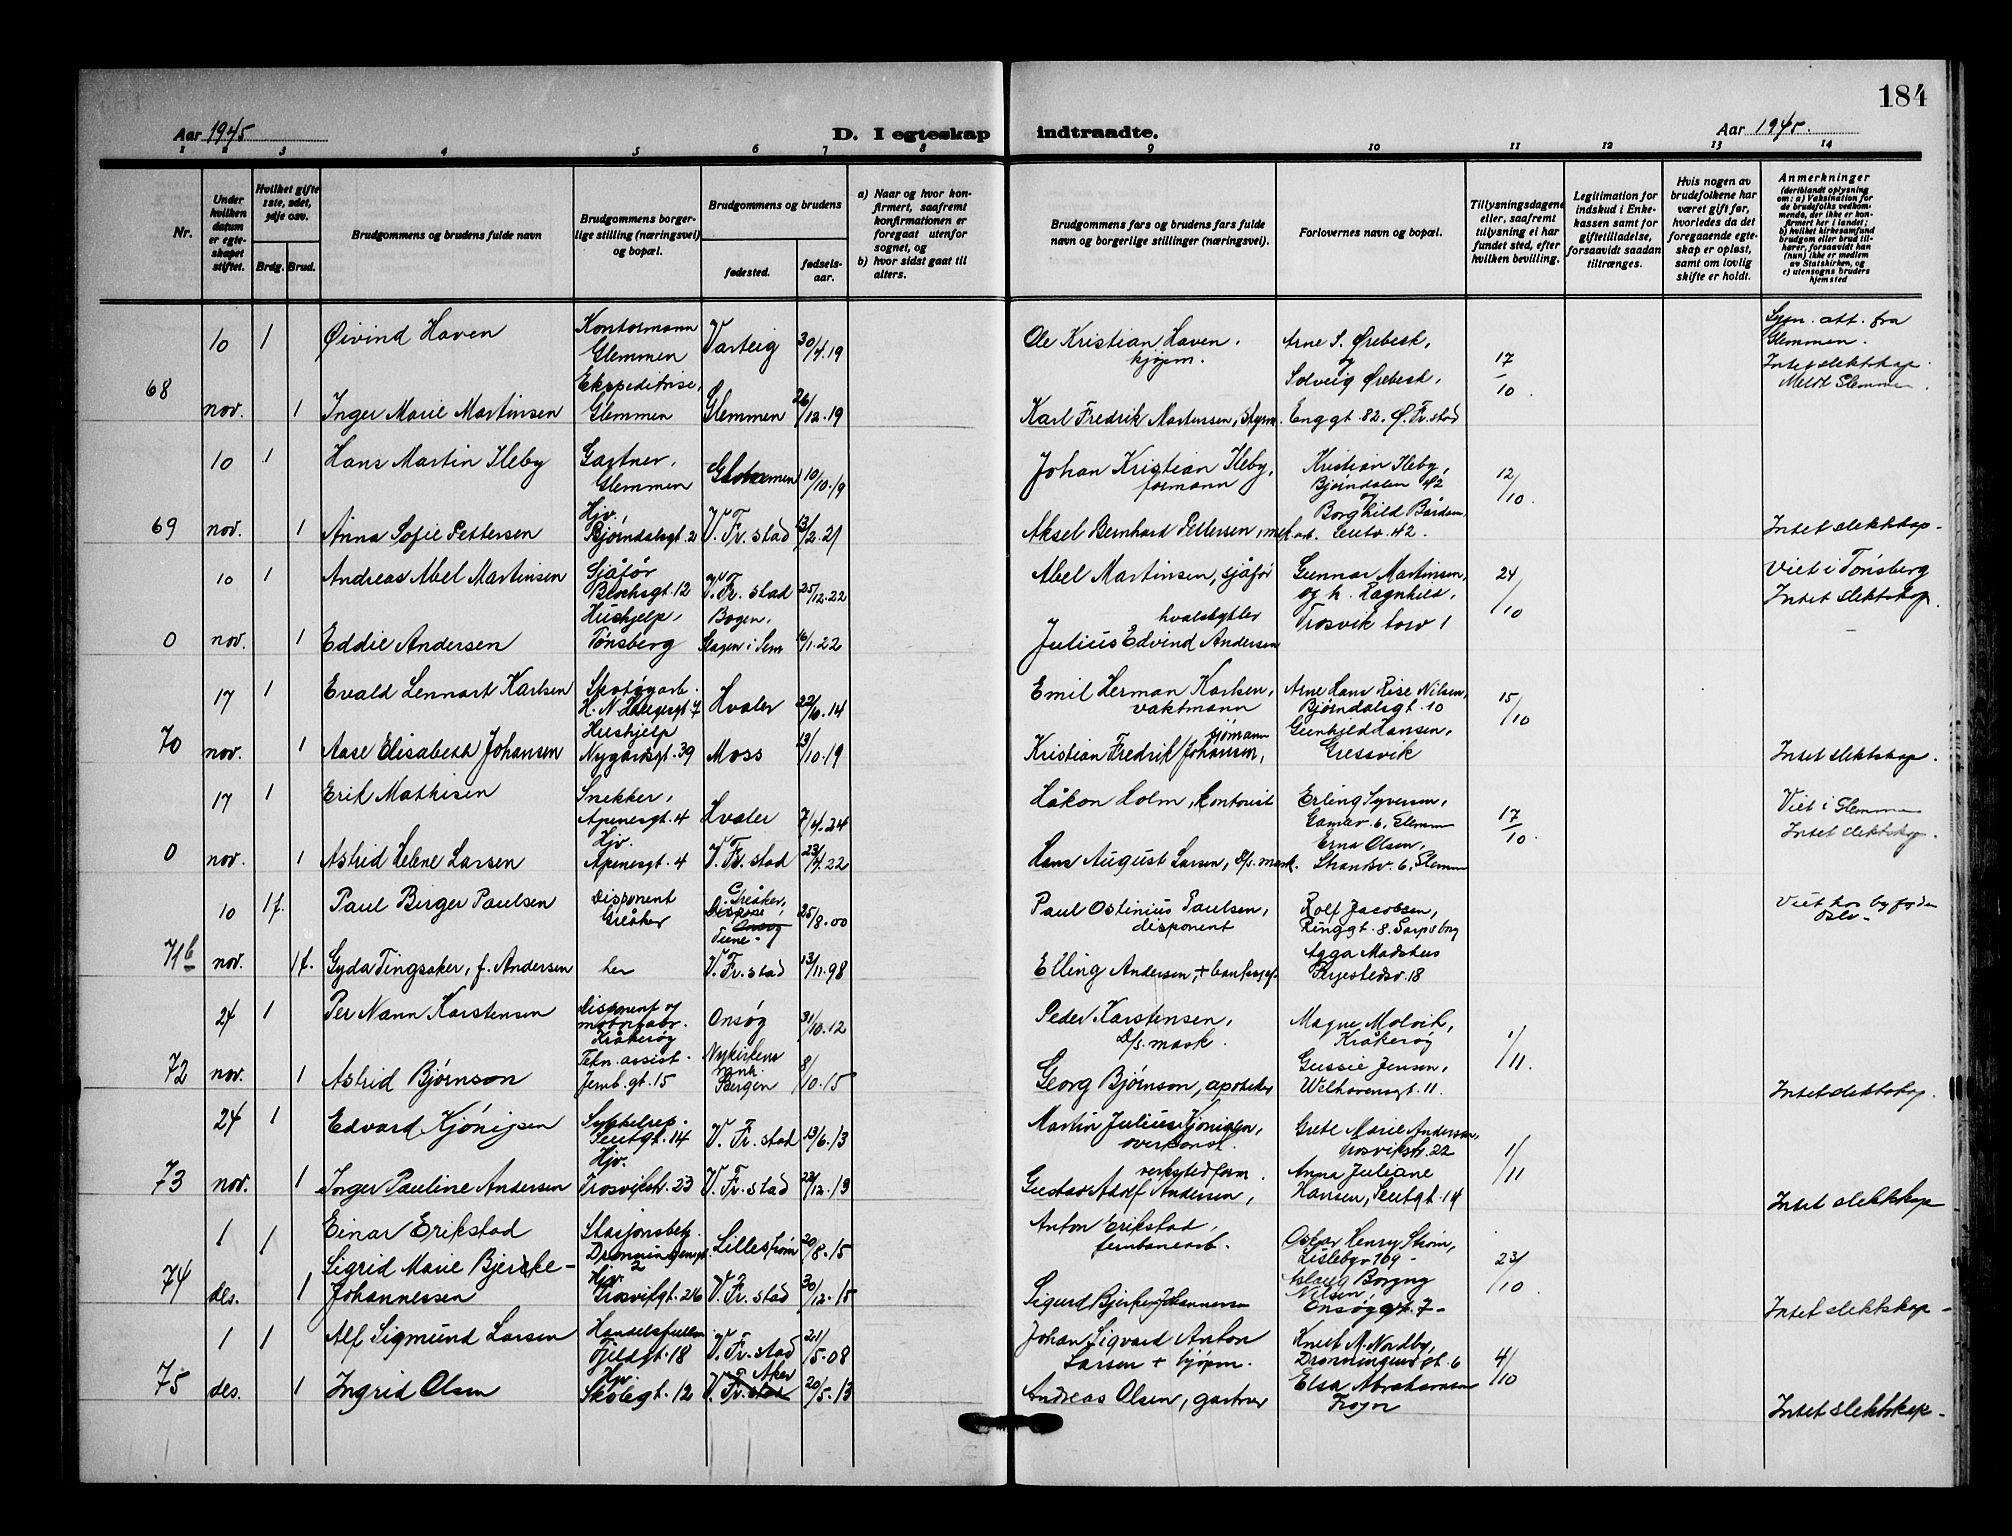 184
Aar 1945
D. I egteskap indtraadte.
Aar 1945.
1 2 3 4 5 6 7 8 9 10 11 12 13 14
Nr.
Under hvilken datum er egteskapet stiftet.
Hvilket gifte 1ste, 2det, 3dje osv.
Brdg. Brud.
Brudgommens og brudens fulde navn
Brudgommens borgerlige stilling (næringsvei) og bopæl.
Brudgommens og brudens
fødested.
fødselsaar.
a) Naar og hvor konfirmert, saafremt konfirmationen er foregaat utenfor sognet, og
b) hvor sidst gaat til alters.
Brudgommens fars og brudens fars fulde navn og borgerlige stillinger (næringsvei).
Forlovernes navn og bopæl.
Tillysningsdagene eller, saafremt tillysning ei har fundet sted, efter hvilken bevilling.
Legitimation for indskud i Enkekassen samt for giftetilladelse, forsaavidt saadan tiltrænges.
Hvis nogen av brudefolkene har været gift før, hvorledes da det foregaaende egteskap er opløst, samt om lovlig skifte er holdt.
Anmerkninger
(deriblandt oplysning om: a) Vaksination for de brudefolks vedkommende, der ikke er konfirmert her i landet; b) hvilket kirkesamfund brudgom eller brud tilhører, forsaavidt han (hun) ikke er medlem av Statskirken, og c) utensogns bruders hjemsted
68
10 1 Øivind Haven Kontormann Glemmen Varteig 30/4.19 Ole Kristian Haven, kjøpm. Arne S. Ørebeck, og Solveig Ørebeck, 17/10.
att. fra Glemmen. Intet slektskap. Meldt Glemmen
nov. 1 Inger Marie Martinsen Ekspeditrise, Glemmen Glemmen 26/12.19 Karl Fredrik Martinsen, styrm. Enggt. 82. Ø. Fr.stad
69
10 1 Hans Martin Ileby Gartner, Glemmen Glemmen 10/10.19 Johan Kristian Ileby, formann Kristian Ileby, Bjørndalen 42 og 12/10.
nov. 1 Anna Sofie Pettersen Hjv. Bjørndalsgt. 2 V. Fr.stad 13/2.21 Aksel Bernhard Pettersen, mek.arb. Borghild Bårdsen Leutv. 42. Intet slektskap -
0
10 1 Andreas Abel Martinsen Sjåfør Blochsgt. 12 V. Fr.stad 25/12.22 Abel Martinsen, sjåfør Gunnar Martinsen, og h. Ragnhild, Trosvik torv 1 24/10 Viet i Tønsberg Intet slektskap.
nov. 1 Eddie Andersen Hushjelp, Tønsberg Bogen, Slagen i Sem 16/1.22 hvalskytter Julius Edvind Andersen
70
17 1 Evald Lennart Karlsen Skotøyarb. H. N. Haugesgt. 7 Hvaler 22/6.14 Emil Herman Karlsen, vaktmann Arne Hans Rise Nilsen, Bjørndalsgt. 10 15/10
nov. 1 Aase Elisabeth Johansen Hushjelp Nygårdsgt. 39 Moss 13/10.19 sjømann Kristian Fredrik Johansen, Gunhild Hansen, Gressvik Intet slektskap.
0
17 1 Erik Mathisen Snekker, Apenesgt. 4 Hvaler 7/4.24 Håkon Holm, kontorist Erling Syversen, Gamlev. 6, Glemm 17/10 Viet i Glemmen Intet slektskap.
nov. 1 Astrid Helene Larsen Hjv. Apenesgt. 4 V. Fr.stad 23/4.22 Hans August Larsen, D/s. mask. Erna Olsen, Strandv. 6, Glemm
71b
10 1f. Paul Birger Paulsen Disponent Greåker Greåker, Tune 25/8.00 Paul Ostinius Paulsen, disponent Rolf Jacobsen, Ringgt. 8. Sarpsborg Viet hos byfogden Oslo -
nov. 1f. Gyda Tingsaker, f. Andersen her V. Fr.stad 13/11.98 Elling Andersen, + banksjef Agga Madshus 18
72
24 1 Per Nann Karstensen Disponent og motorfabr. Kråkerøy Onsøy 31/10.12 Peder Karstensen, D/s. mask. Magne Molvik, Kråkerøy 1/11.
nov. 1 Astrid Bjørnson Tekn. assist. Jernb.gt. 15 Nykirkens menh. Bergen 8/10.15 Georg Bjørnson, apoteker Gussie Jensen, Welhavensgt. 11. Intet slektskap.
73
24 1 Edvard Kjønigsen Sykkelrep. Leutgt. 14 V. Fr.stad 13/6.13 Martin Julius Kjønigsen, overkonst. Grete Marie Andersen, Trosvikstr. 22 1/11
nov. 1 Inger Pauline Andersen Hjv. Trosvikstr. 23 V. Fr.stad 22/12.13 verkstedform. Gustav Adolf Andersen, Anna Juliane Hansen, Leutgt. 14 Intet slektskap
74
1 1 Einar Erikstad Stasjonsbetj. Dronningensgt. 2 Lillestrøm 20/8.15 Anton Erikstad, jernbanearb. Oskar Henry Strøm, Lislebyv 109 - 23/10.
des. 1 Sigrid Marie Bjerske-Johannessen Hjv. Trosvikgt. 26 V. Fr.stad 30/12.15 Sigurd Bjerske Johannessen Aslaug Borgny Nilsen, Onsøygt. 7 - Intet slektskap -
75
1 1 Alf Sigmund Larsen Handelsfullm. Fjeldgt. 18 V. Fr.stad 21/5.08 Johan Sigvard Anton Larsen + kjøpm. Knut M. Nordby, Dronningensgt. 6 4/10
des. 1 Ingrid Olsen Hjv. Skolegt. 12 V. Fr.stad Aker 20/5.13 Andreas Olsen, gartner Elsa Abrahamsen Frogn Intet slektskap -